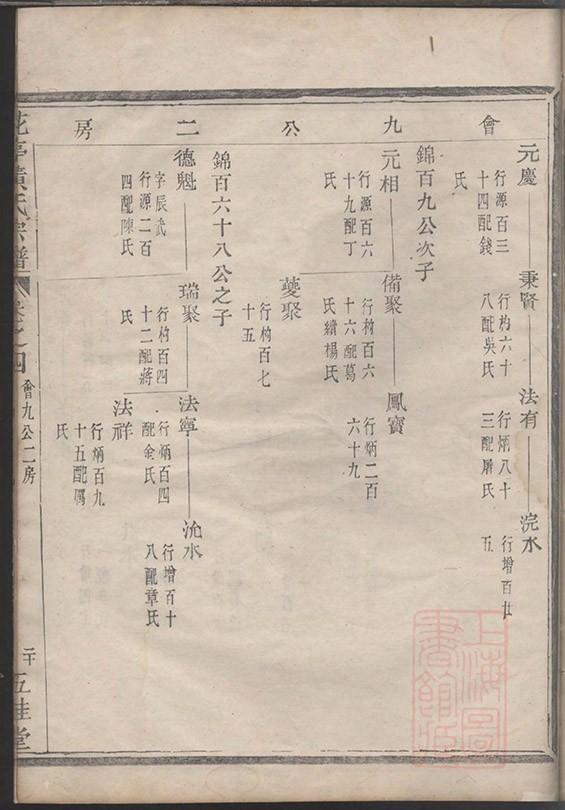 會九公二房
元慶
行源百三
十四配錢
氏
秉賢
行杓六十
八配吳氏
法有
行炳八十
三配屠氏
浣水
行增百廿
五
錦百九公次子
元相
行源百六
十九配丁
氏
備聚
行杓百六
十六配葛
氏續楊氏
鳳寶
行炳二百
六十九
夔聚
行杓百七
十五
錦百六十八公之子
德魁
字辰武
行源二百
四配陳氏
瑞聚
行杓百四
十二配蔣
氏
法寧
行炳百四
配金氏
沇水
行增百十
八配章氏
法祥
行炳百九
十五配厲
氏
黃氏宗譜
卷之四
會九公二房
二十
五桂堂
上海圖
書館藏